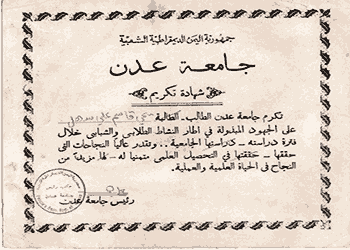 جمهورية اليمن الديمقراطية الشعبية
جامعة عدن
شهادة تكريم
تكرم جامعة عدن الطالب ـ الطالبة قاسم علي
على الجهود المبذولة في اطار النشاط الطلابي والشبابي خلال
فترة دراسته ـ كـ دراستها الجامعية .. وتقدر عاليا النجاحات التي
حققها ـ حققتها في التحصيل العلمي متمنيا له ـ لها مزيدا من
النجاح في الحياة العلمية والعملية.
رئيس جامعة عدن